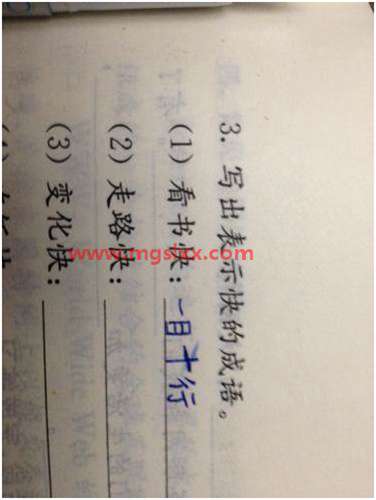 3. 写出表示快的成语。
(1) 看书快：一目十行
(2) 走路快：
(3) 变化快：
www.mgsixx.com